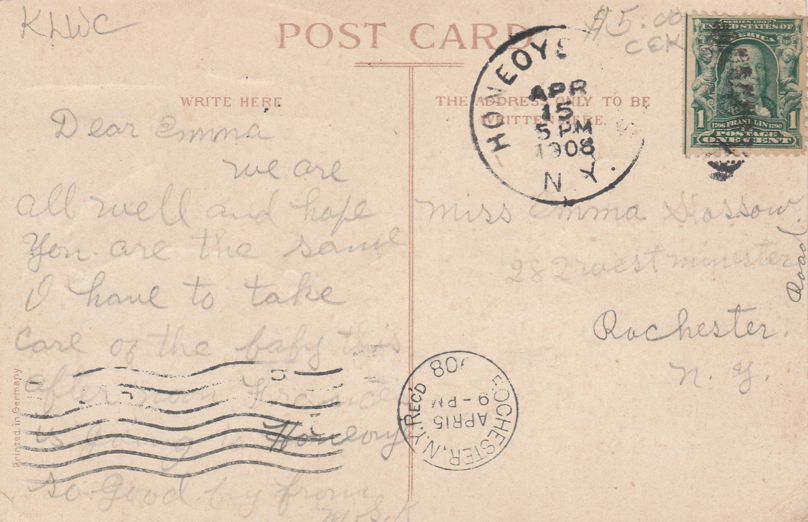 KLWC
$5.00
CEK
POST CARD
WRITE HERE
THE ADDRESS ONLY TO BE
WRITTEN HERE.
HONEOYE
APR
15
5 PM
1908
N.Y.
SERIES 1902
UNITED STATES OF
AMERICA
1 FRANKLIN 1
POSTAGE
ONE CENT
Dear Emma
we are
all well and hope
You are the same
I have to take
care of the baby this
afternoon Frances
is going to Honeoye
so good by from
Mrs. K
Miss Emma
282 westminester
Road
Rochester.
N. Y.
ROCHESTER, N.Y. REC'D
APR 15
9-PM
'08
Printed in Germany